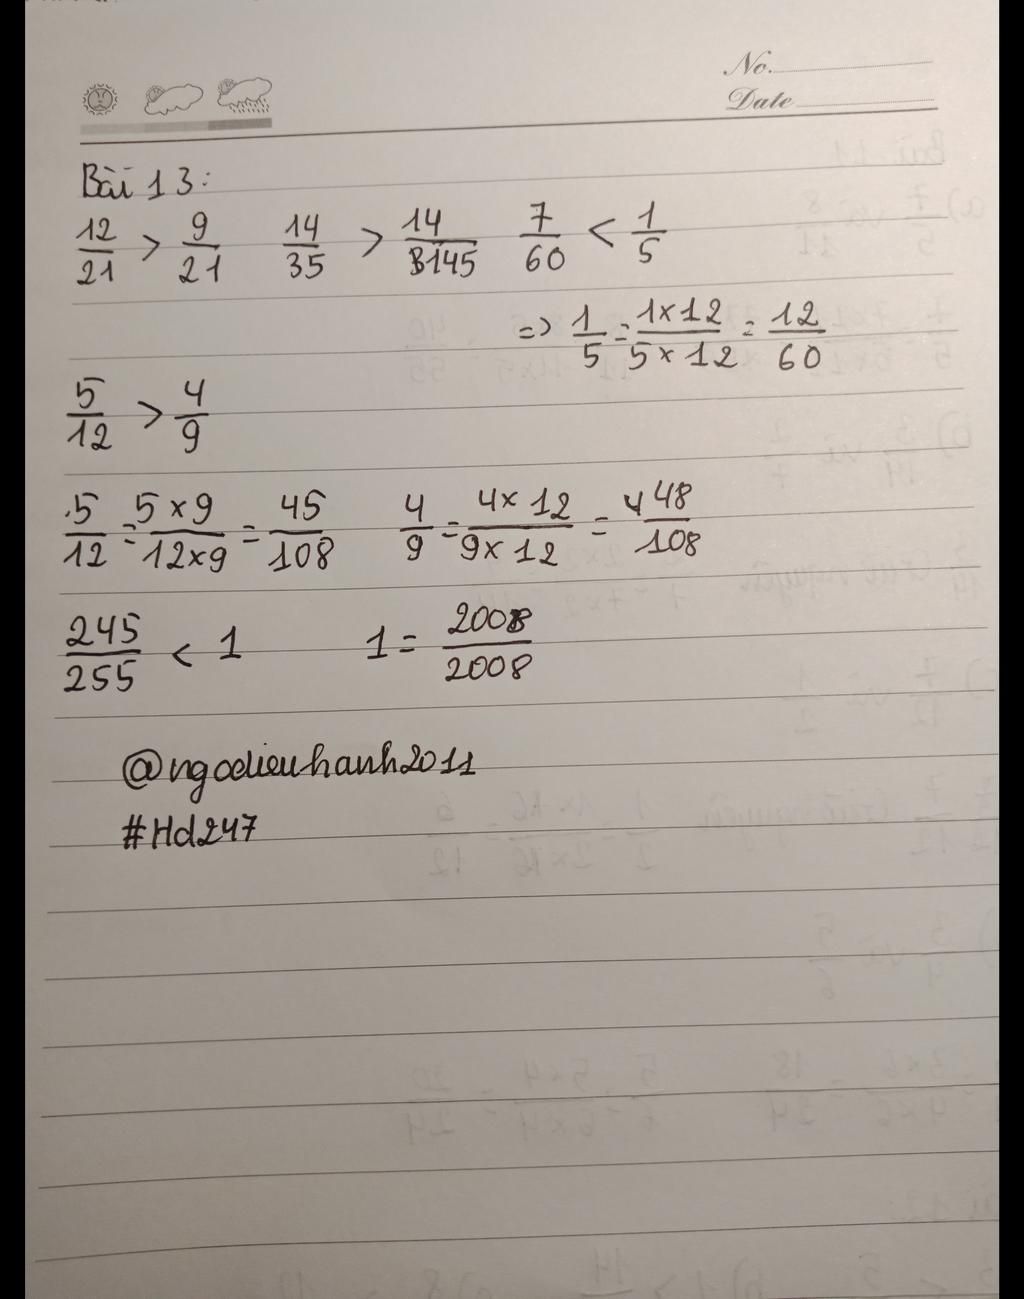 No.
Date
Bài 13:
12/21 > 9/21 14/35 > 14/145 7/60 < 1/5
=> 1/5 = 1×12/5×12 = 12/60
5/12 > 4/9
5/12 = 5×9/12×9 = 45/108 4/9 = 4×12/9×12 = 48/108
245/255 < 1 1 = 2008/2008
@ngodieuhanh2011
#Hd247